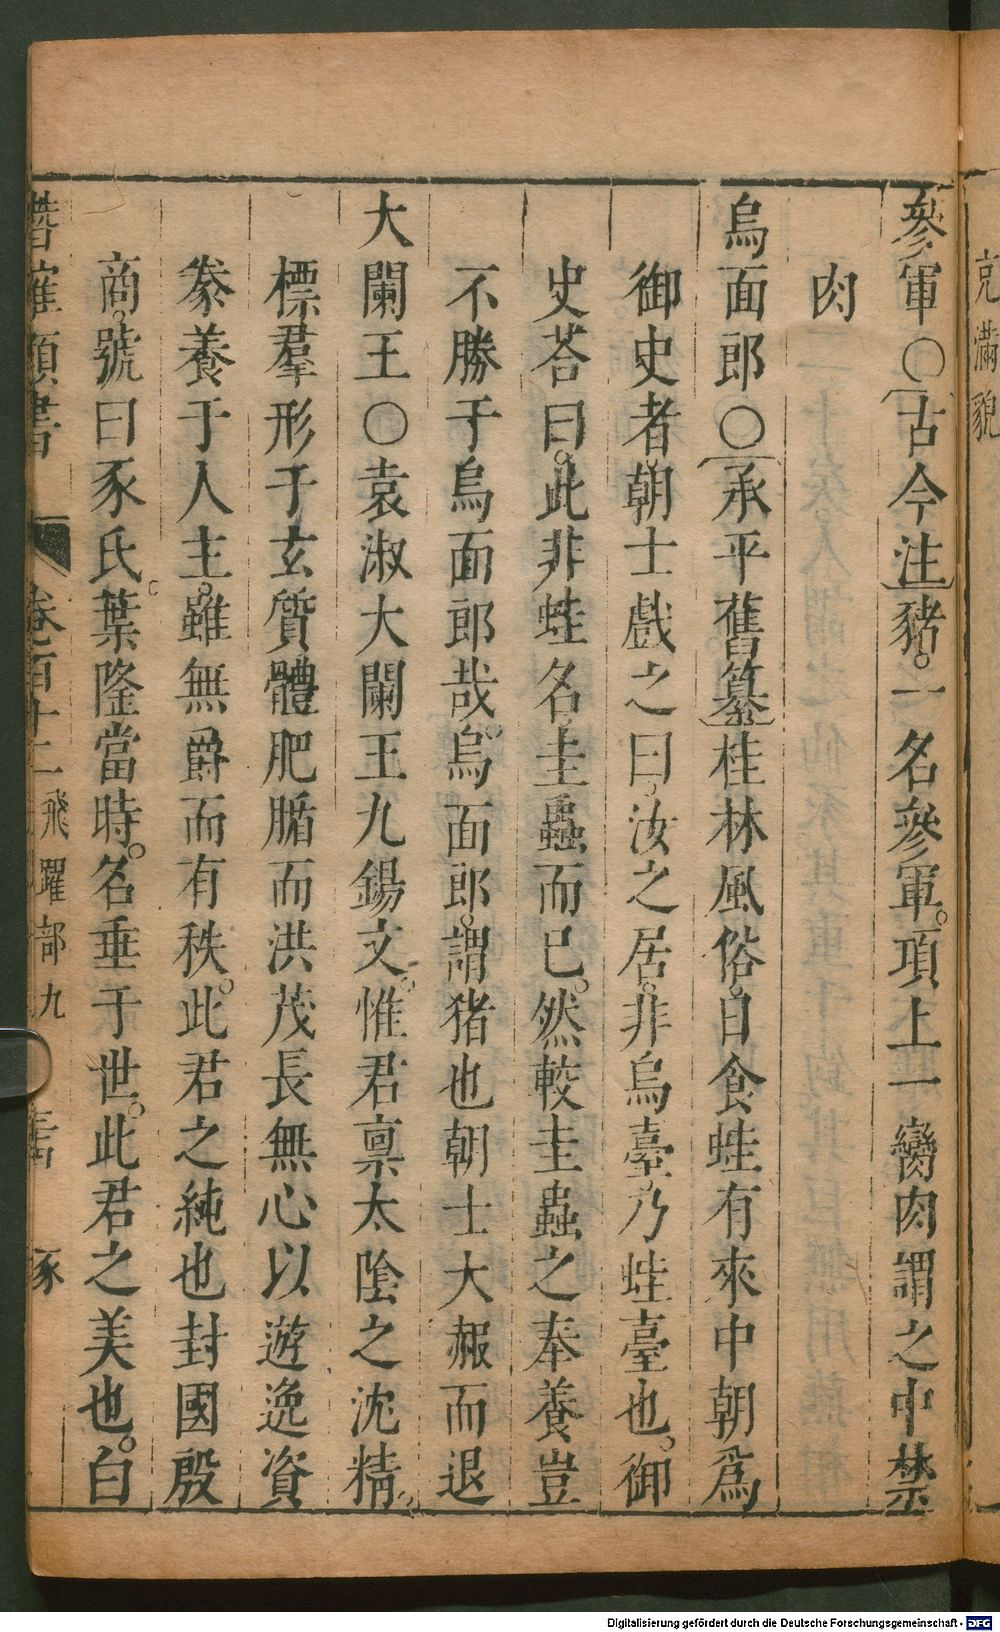 克滿貌
參軍○古今注豬。一名參軍。項上一臠肉謂之中禁
肉
烏面郎○承平舊纂桂林風俗。日食蛙有來中朝爲
御史者。朝士戲之曰。汝之居。非烏臺。乃蛙臺也。御
史荅曰。此非蛙名圭蟲而已。然較圭蟲之奉養豈
不勝于烏面郎哉。烏面郎。謂猪也朝士大赧而退
大闌王○袁淑大闌王九錫文。惟君禀太陰之沈精。
標羣形于玄質體肥腯而洪茂長無心以遊逸資
豢養于人主。雖無爵而有秩。此君之純也封國殷
商。號曰豕氏。葉隆當時。名垂于世。此君之美也。白
類書 卷百十二 飛躍部九 豕
Digitalisierung gefördert durch die Deutsche Forschungsgemeinschaft - DFG